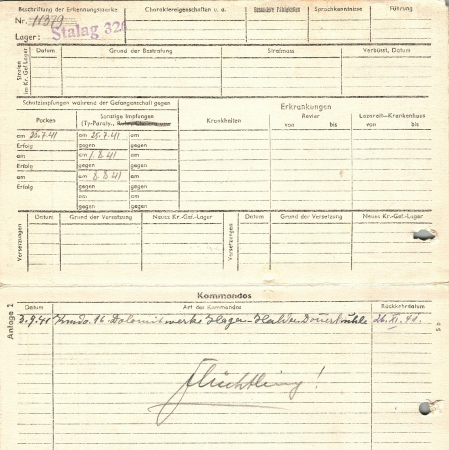 Beschriftung der Erkennungsmarke
Charaktereigenschaften u. a.
Besondere Fähigkeiten
Sprachkenntnisse
Führung
Nr. 11379
Lager: Stalag 326
Strafen im Kr. Gef. Lager
Datum
Grund der Bestrafung
Strafmass
Verbüsst, Datum
Schutzimpfungen während der Gefangenschaft gegen
Erkrankungen
Pocken
Sonstige Impfungen
(Ty-Paraty.,
Krankheiten
Revier
von bis
Lazarett—Krankenhaus
von bis
am 25.7.41 am 25.7.41 am
Erfolg gegen gegen
am am 1.8.41 am
Erfolg gegen gegen
am am 8.8.41 am
Erfolg gegen gegen
am am
gegen gegen
Versetzungen
Datum
Grund der Versetzung
Neues Kr.-Gef.-Lager
Versetzungen
Datum
Grund der Versetzung
Neues Kr.-Gef.-Lager
Anlage 1
Kommandos
Datum
Art des Kommandos
Rückkehrdatum
3.9.41 Kmdo. 96 Dolomitwerke Hagen-Halden 26. XI. 41.
Flüchtling!